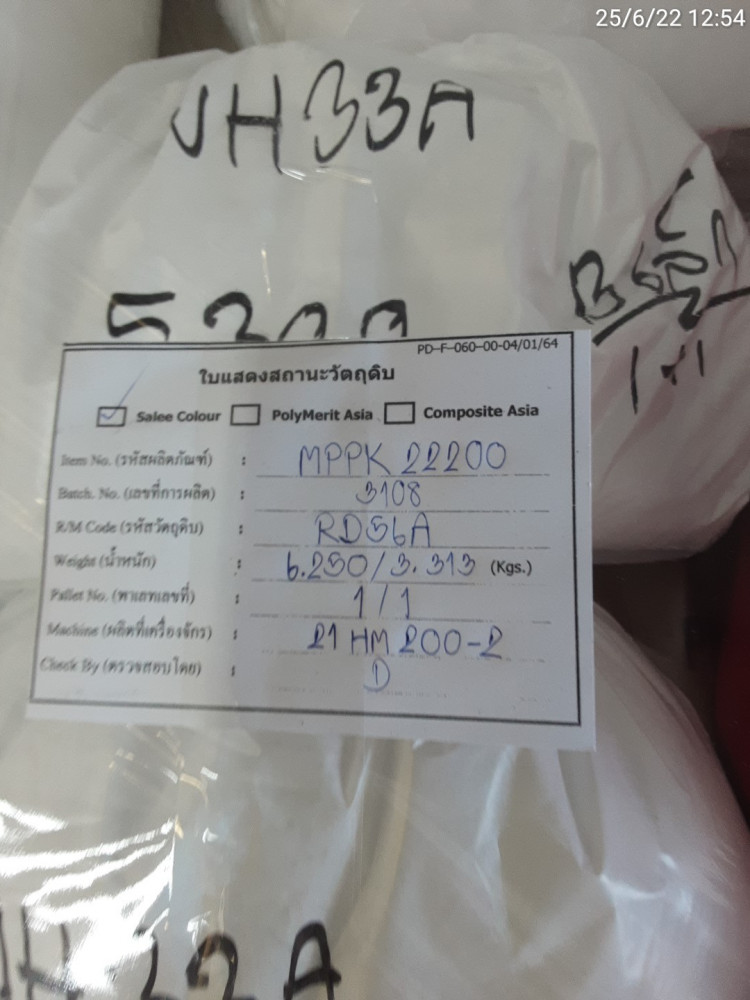 25/6/22 12:54
JH33A
PD-F-060-00-04/01/64
ใบแสดงสถานะวัตถุดิบ
Salee Colour PolyMerit Asia Composite Asia
Item No. (รหัสผลิตภัณฑ์) : MPPK 22200
Batch. No. (เลขที่การผลิต) : 3108
R/M Code (รหัสวัตถุดิบ) : RD56A
Weight (น้ำหนัก) : 6.250/3.313 (Kgs.)
Pallet No. (พาเลทเลขที่) : 1/1
Machine (ผลิตที่เครื่องจักร) : 21 HM 200-2
Check By (ตรวจสอบโดย) : D